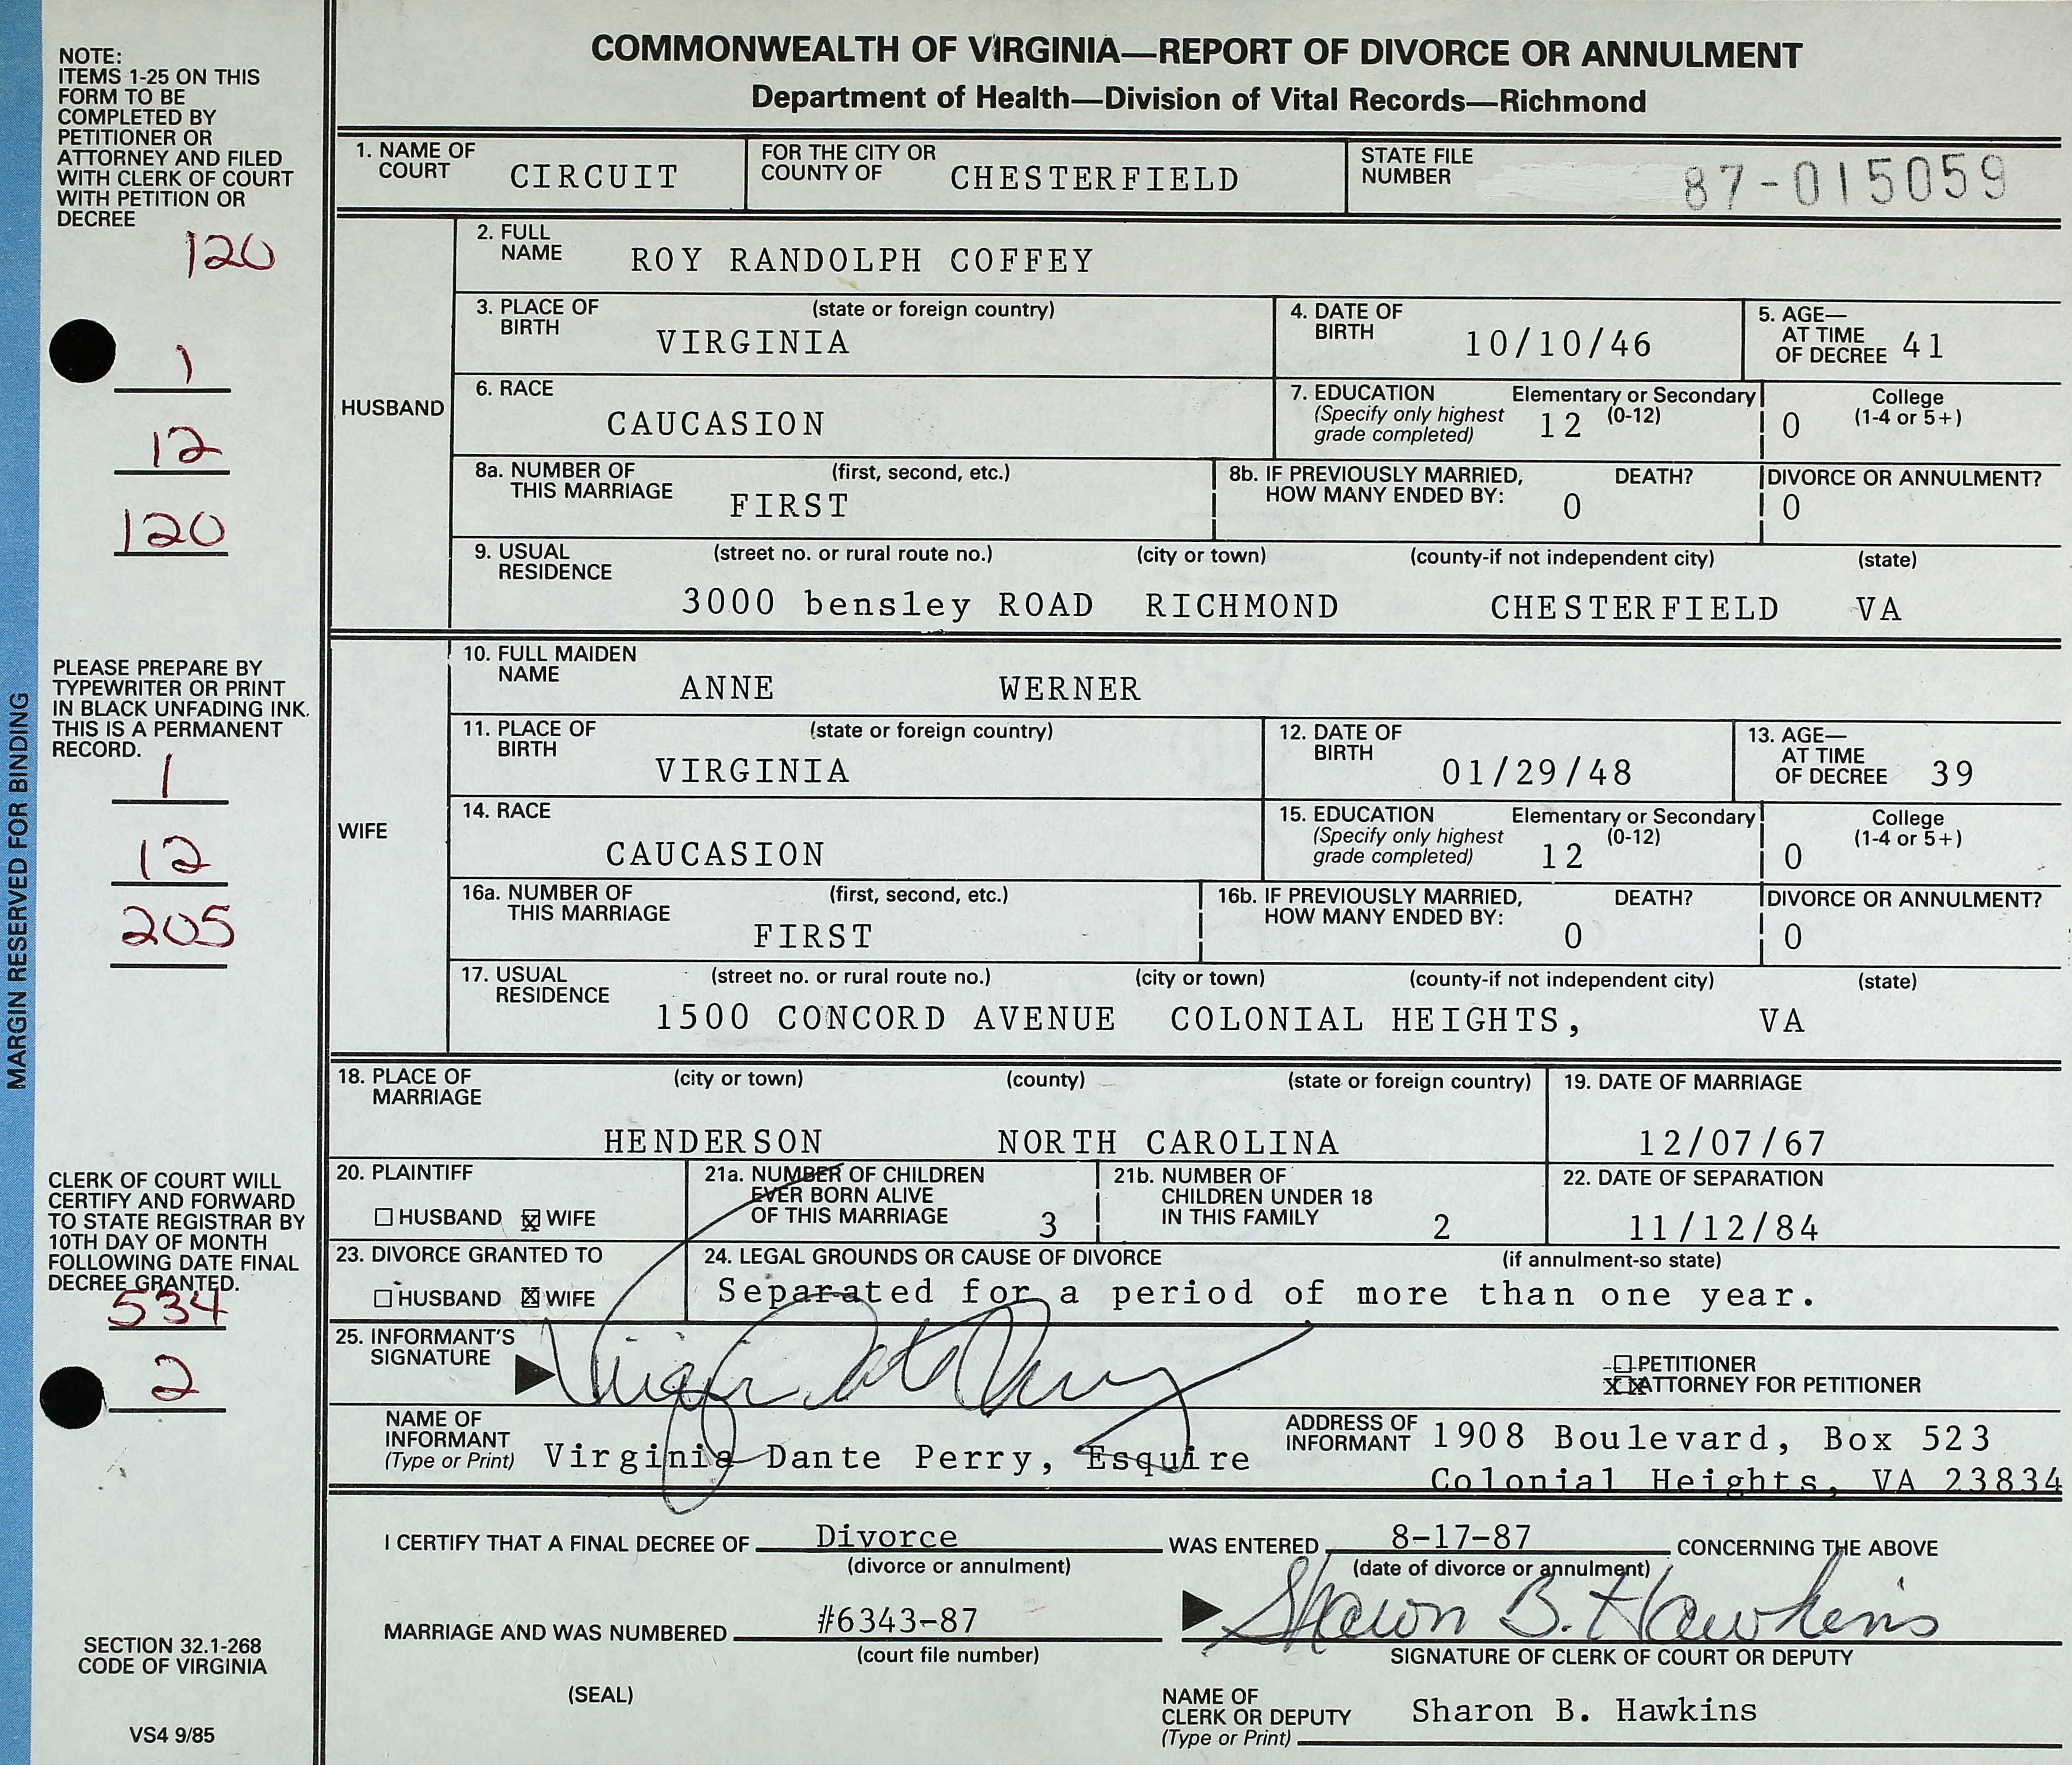 COMMONWEALTH OF VIRGINIA—REPORT OF DIVORCE OR ANNULMENT
Department of Health—Division of Vital Records—Richmond
NOTE:
ITEMS 1-25 ON THIS
FORM TO BE
COMPLETED BY
PETITIONER OR
ATTORNEY AND FILED
WITH CLERK OF COURT
WITH PETITION OR
DECREE
120
1
12
120
PLEASE PREPARE BY
TYPEWRITER OR PRINT
IN BLACK UNFADING INK.
THIS IS A PERMANENT
RECORD.
1
12
205
MARGIN RESERVED FOR BINDING
CLERK OF COURT WILL
CERTIFY AND FORWARD
TO STATE REGISTRAR BY
10TH DAY OF MONTH
FOLLOWING DATE FINAL
DECREE GRANTED.
534
2
SECTION 32.1-268
CODE OF VIRGINIA
VS4 9/85
1. NAME OF COURT CIRCUIT FOR THE CITY OR COUNTY OF CHESTERFIELD STATE FILE NUMBER 87-015059
HUSBAND
2. FULL NAME ROY RANDOLPH COFFEY
3. PLACE OF BIRTH (state or foreign country) VIRGINIA 4. DATE OF BIRTH 10/10/46 5. AGE— AT TIME OF DECREE 41
6. RACE CAUCASION 7. EDUCATION (Specify only highest grade completed) Elementary or Secondary (0-12) 12 College (1-4 or 5+) 0
8a. NUMBER OF THIS MARRIAGE (first, second, etc.) FIRST 8b. IF PREVIOUSLY MARRIED, HOW MANY ENDED BY: DEATH? 0 DIVORCE OR ANNULMENT? 0
9. USUAL RESIDENCE (street no. or rural route no.) (city or town) (county-if not independent city) (state)
3000 bensley ROAD RICHMOND CHESTERFIELD VA
WIFE
10. FULL MAIDEN NAME ANNE WERNER
11. PLACE OF BIRTH (state or foreign country) VIRGINIA 12. DATE OF BIRTH 01/29/48 13. AGE— AT TIME OF DECREE 39
14. RACE CAUCASION 15. EDUCATION (Specify only highest grade completed) Elementary or Secondary (0-12) 12 College (1-4 or 5+) 0
16a. NUMBER OF THIS MARRIAGE (first, second, etc.) FIRST 16b. IF PREVIOUSLY MARRIED, HOW MANY ENDED BY: DEATH? 0 DIVORCE OR ANNULMENT? 0
17. USUAL RESIDENCE (street no. or rural route no.) (city or town) (county-if not independent city) (state)
1500 CONCORD AVENUE COLONIAL HEIGHTS, VA
18. PLACE OF MARRIAGE (city or town) (county) (state or foreign country) 19. DATE OF MARRIAGE
HENDERSON NORTH CAROLINA 12/07/67
20. PLAINTIFF HUSBAND X WIFE 21a. NUMBER OF CHILDREN EVER BORN ALIVE OF THIS MARRIAGE 3 21b. NUMBER OF CHILDREN UNDER 18 IN THIS FAMILY 2 22. DATE OF SEPARATION 11/12/84
23. DIVORCE GRANTED TO HUSBAND X WIFE 24. LEGAL GROUNDS OR CAUSE OF DIVORCE (if annulment-so state)
Separated for a period of more than one year.
25. INFORMANT'S SIGNATURE Virginia Dante Perry PETITIONER
XX ATTORNEY FOR PETITIONER
NAME OF INFORMANT (Type or Print) Virginia Dante Perry, Esquire ADDRESS OF INFORMANT 1908 Boulevard, Box 523
Colonial Heights, VA 23834
I CERTIFY THAT A FINAL DECREE OF Divorce WAS ENTERED 8-17-87 CONCERNING THE ABOVE
(divorce or annulment) (date of divorce or annulment)
MARRIAGE AND WAS NUMBERED #6343-87 Sharon B. Hawkins
(court file number) SIGNATURE OF CLERK OF COURT OR DEPUTY
(SEAL)
NAME OF CLERK OR DEPUTY (Type or Print) Sharon B. Hawkins